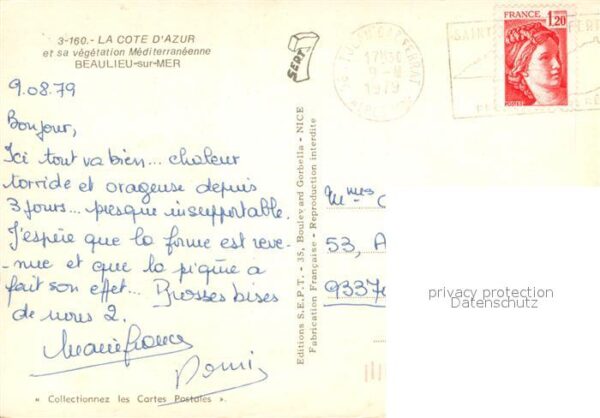 3-160.- LA COTE D'AZUR
et sa végétation Méditerranéenne
BEAULIEU-sur-MER
9.08.79
Bonjour,
Ici tout va bien... chaleur
torride et orageuse depuis
3 jours... presque insupportable.
J'espère que la forme est reve-
-nue et que la piqûre a
fait son effet... Grosses bises
de nous 2.
Marie France
« Collectionnez les Cartes Postales ».
SEPT
Editions S.E.P.T. - 35, Boulevard Gorbella - NICE
Fabrication Française - Reproduction interdite
17H30
9-8
1979
FRANCE
1,20
Mmes
53, A
9337
privacy protection
Datenschutz